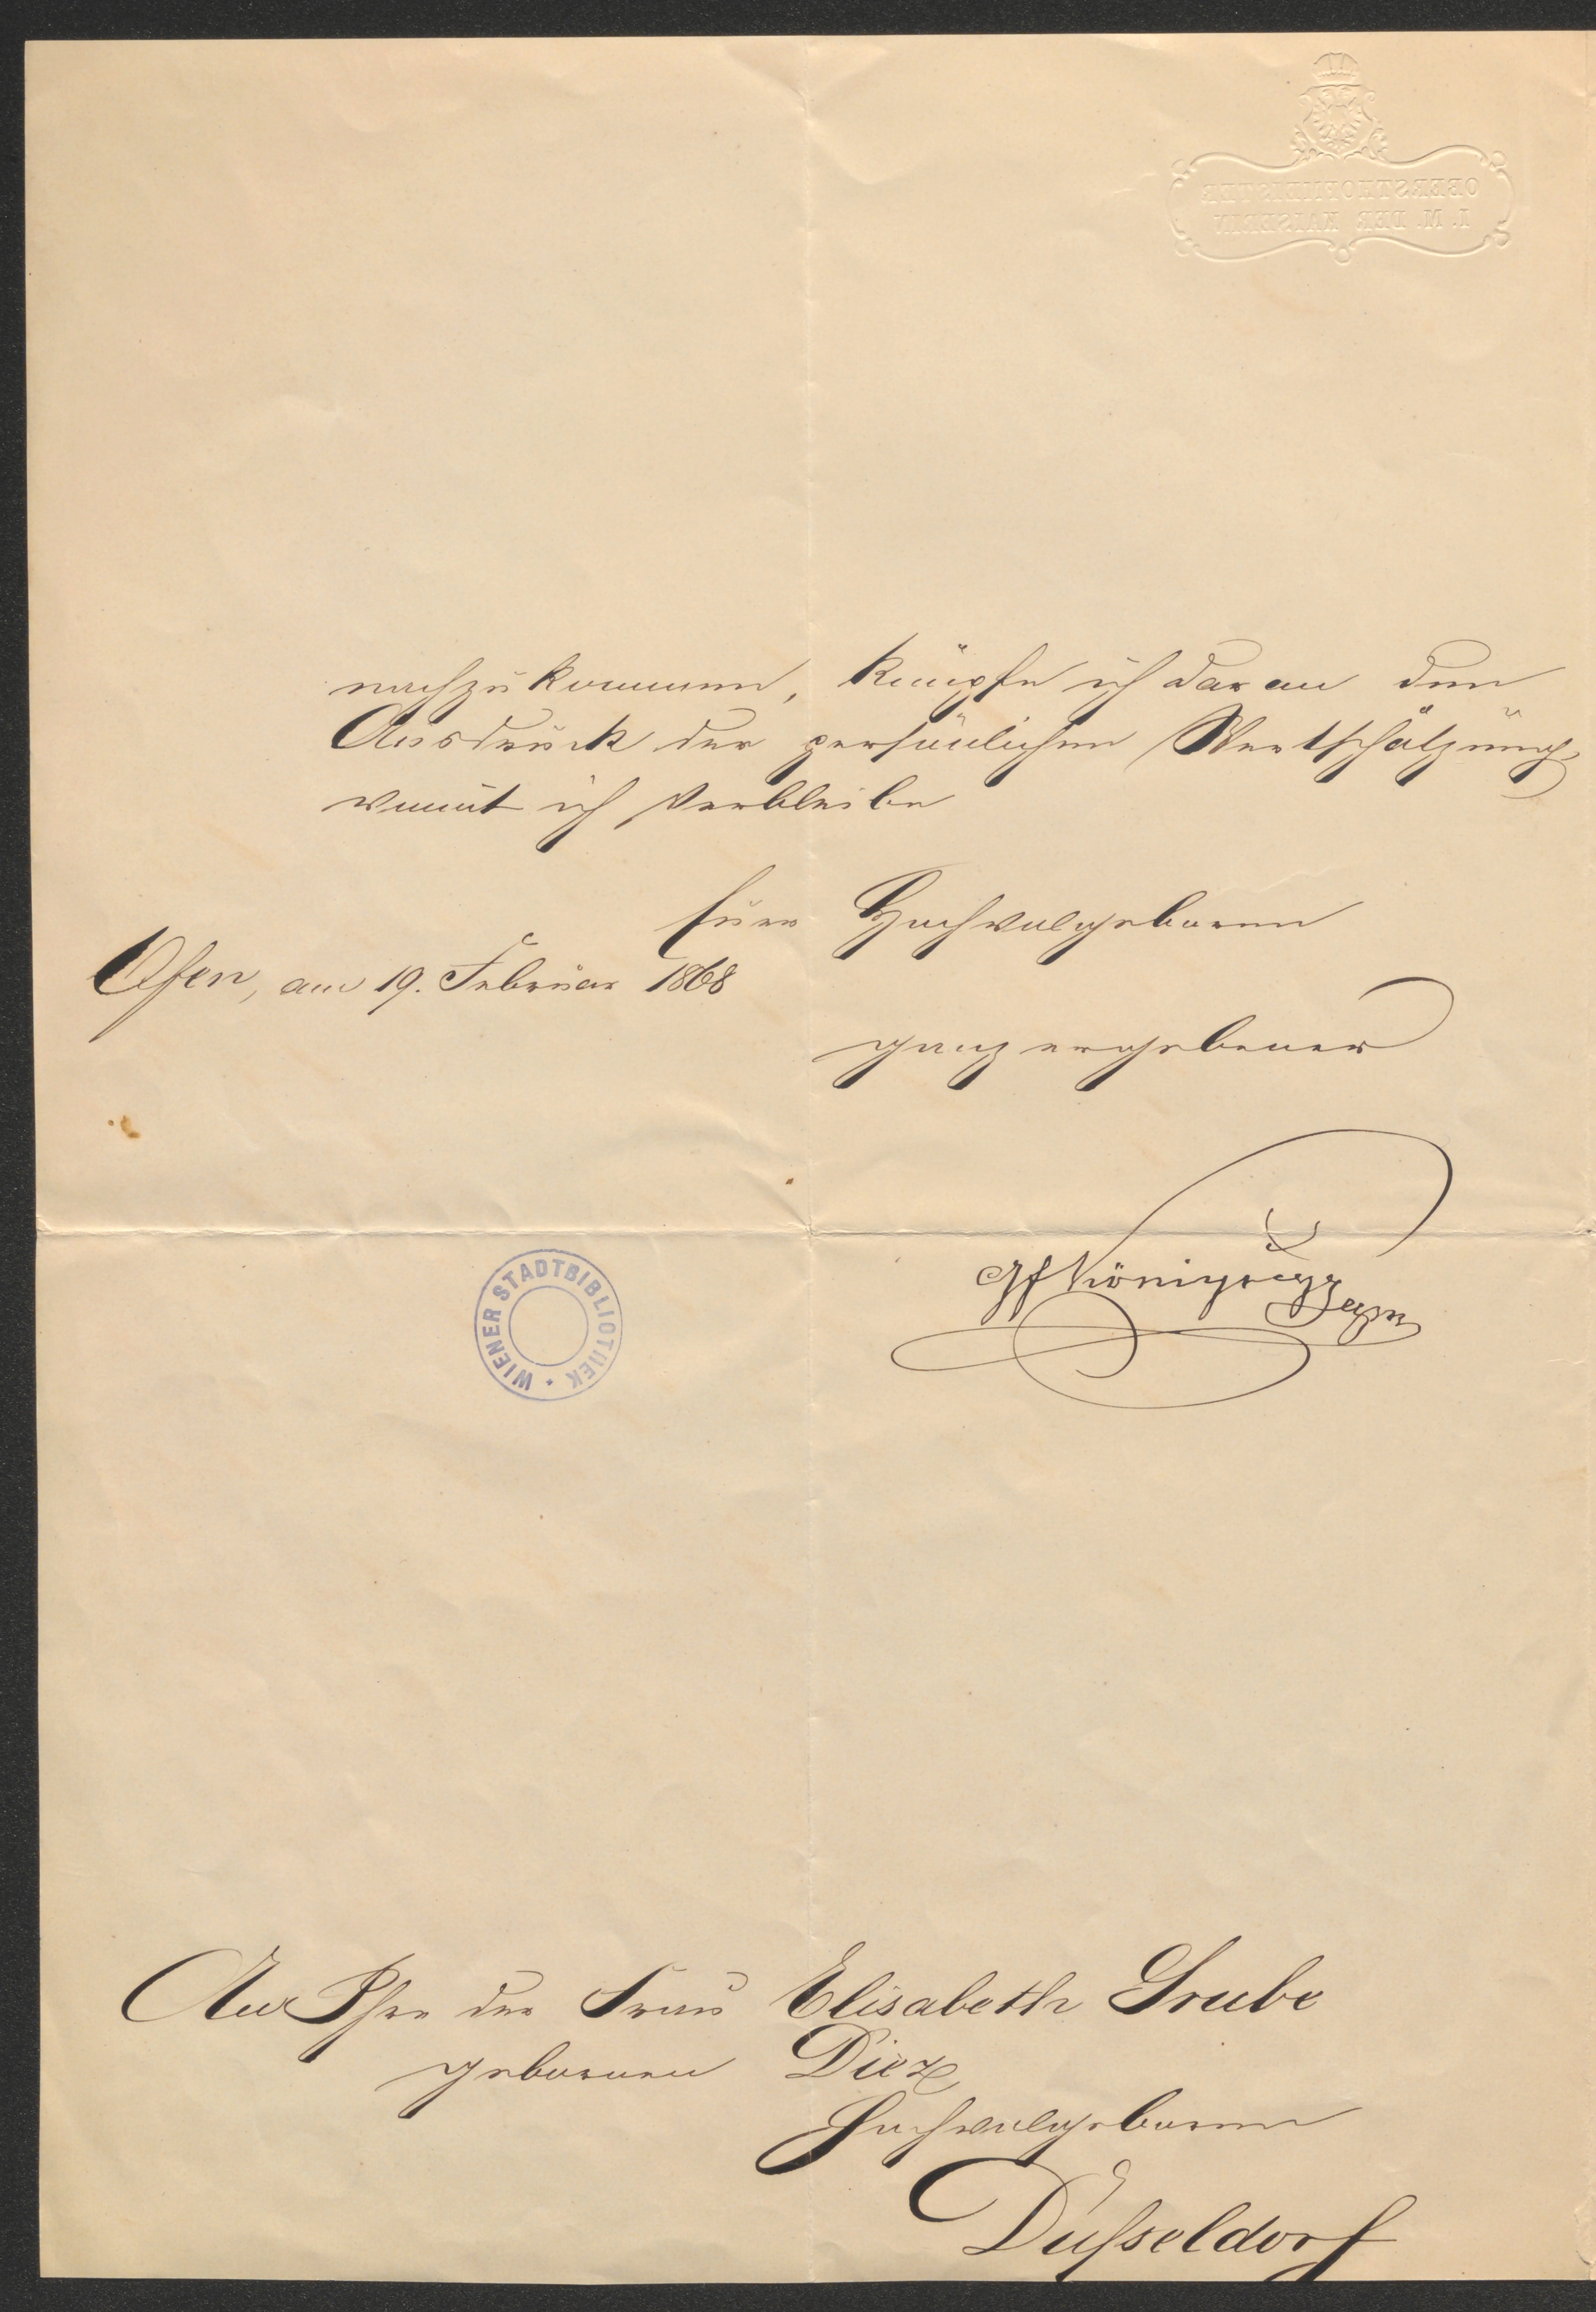 OBERSTHOFMEISTER
I. M. DER KAISERIN
nachzukommen, knüpfe ich daran den
Ausdruck der persönlichen Wertschätzung,
womit ich verbleibe
Euer Hochwolgeboren
Ofen, am 19. Februar 1868
ganz ergebener
Gf Königsegg
WIENER STADTBIBLIOTHEK
An Ihre der Frau Elisabeth Grube
gebornen Diez
Hochwolgeboren
Düsseldorf